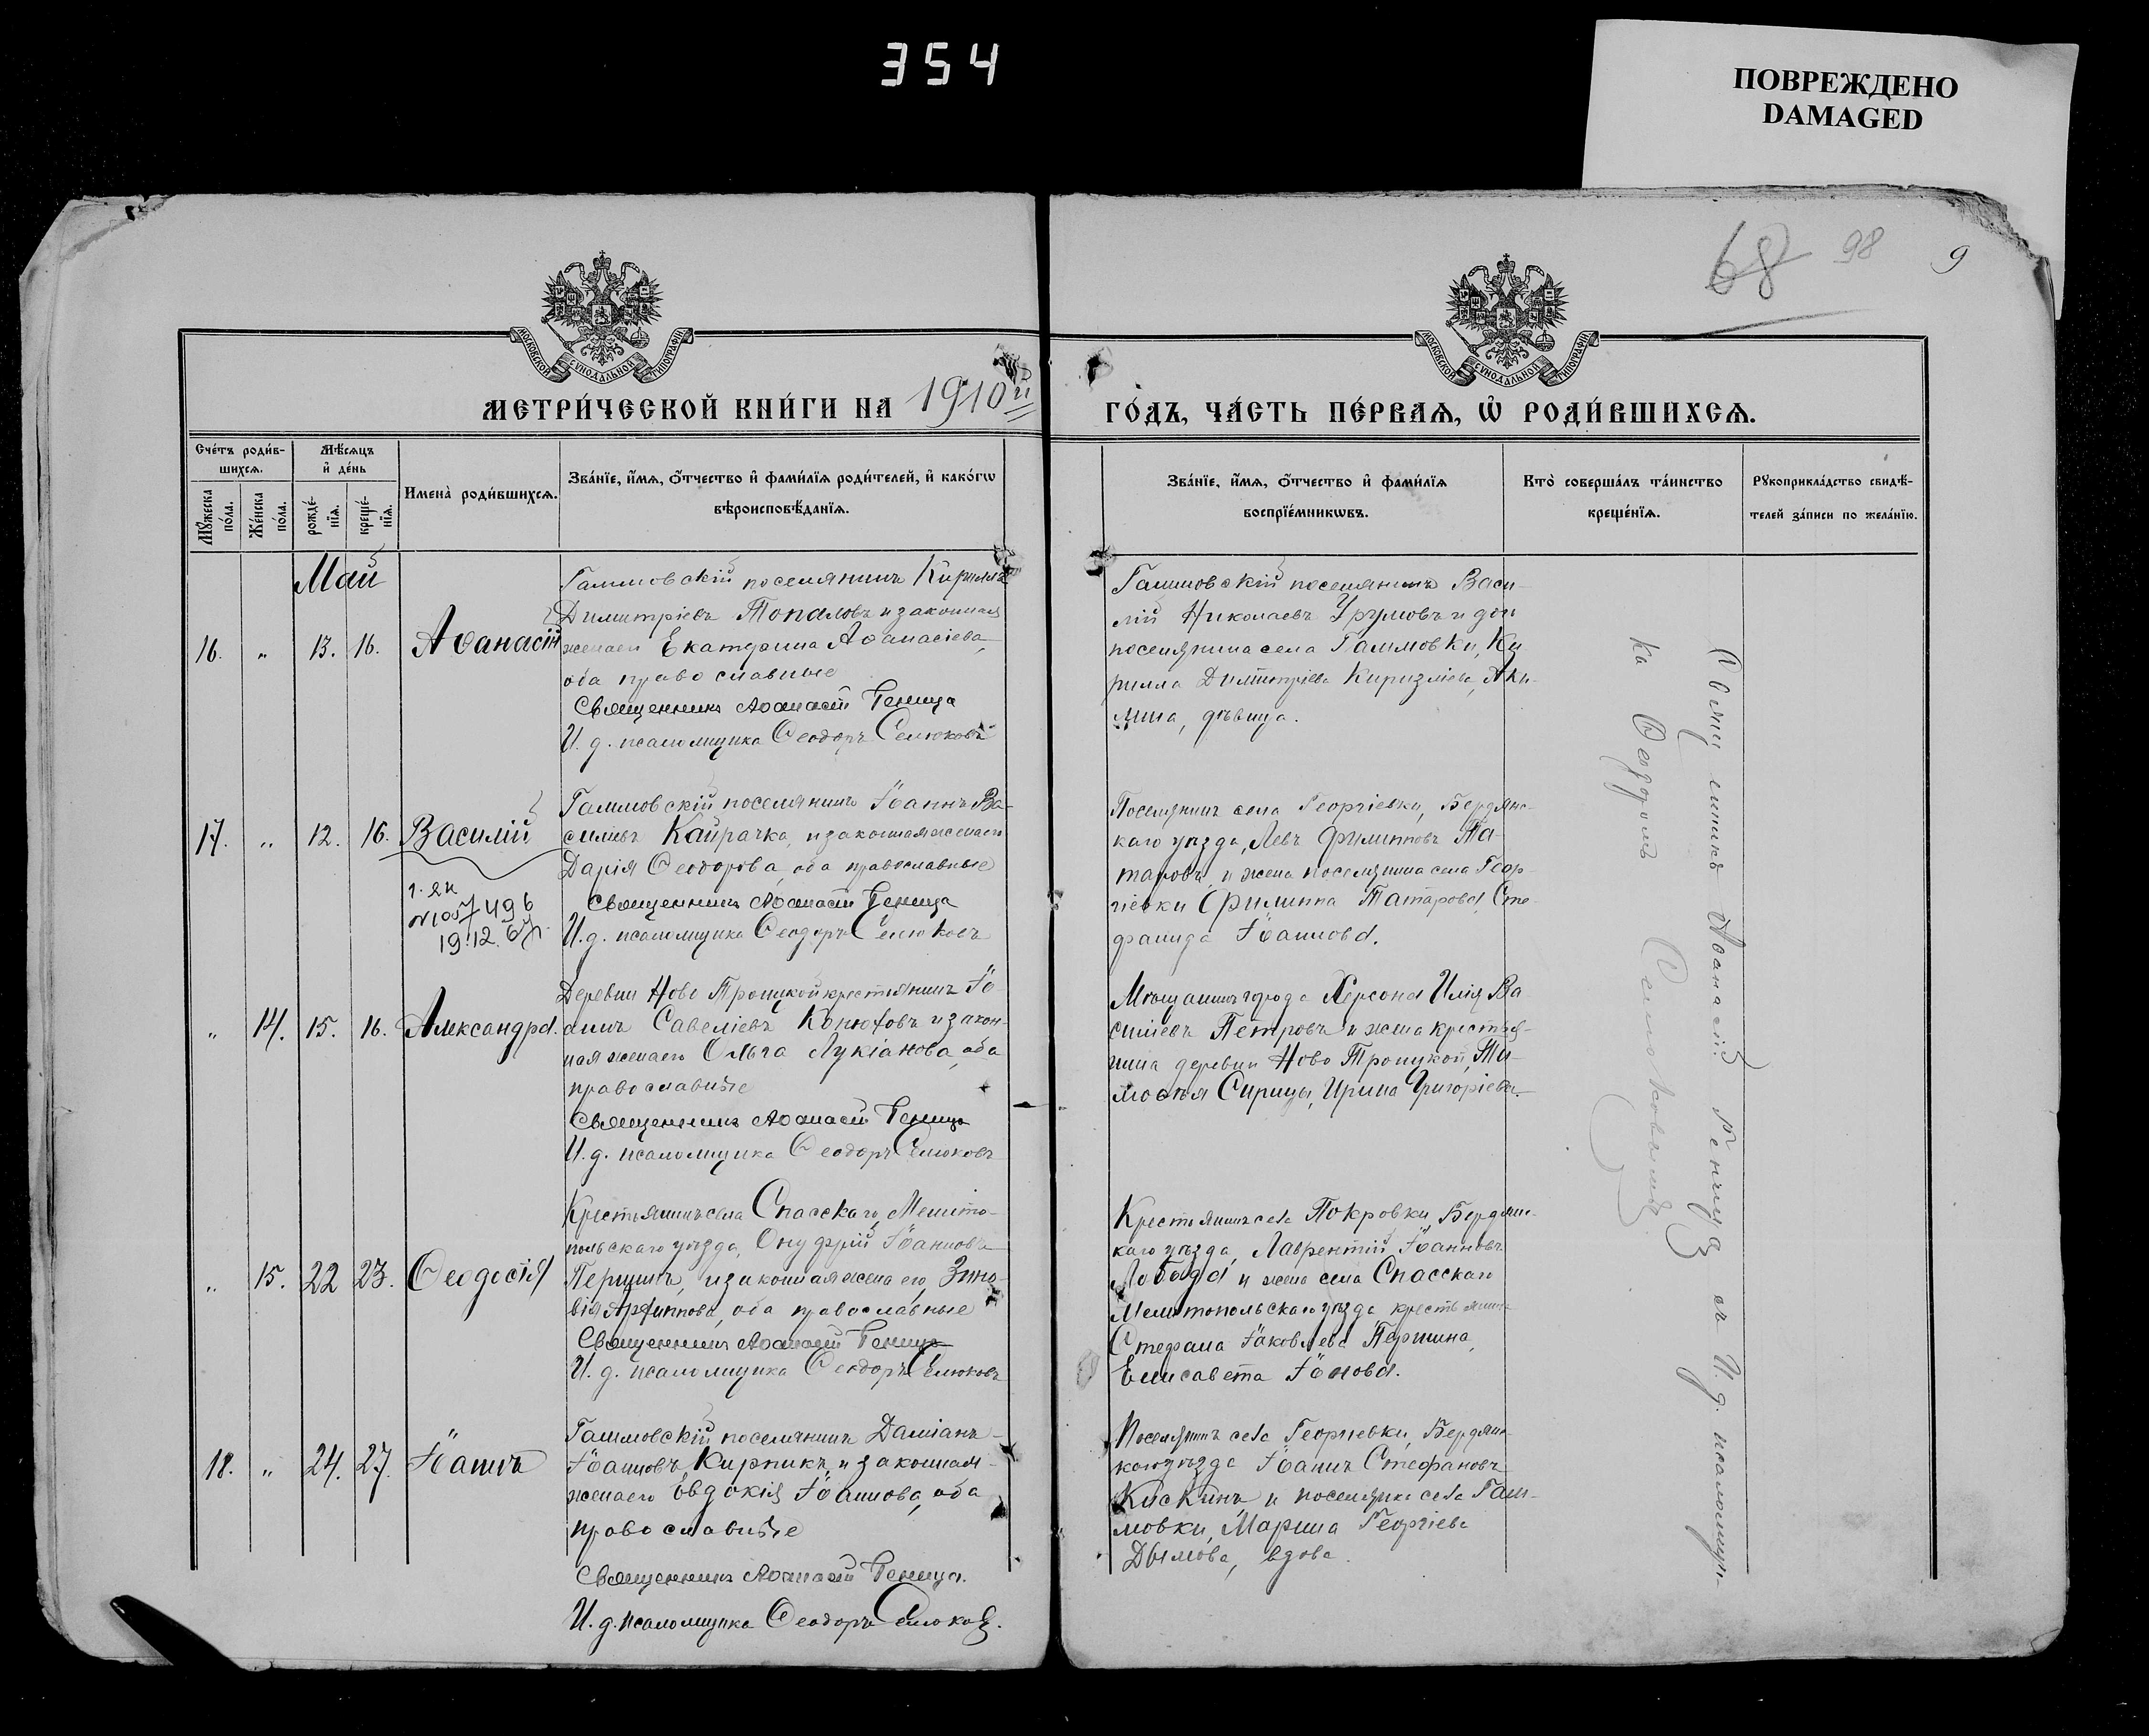 354
ПОВРЕЖДЕНО
DAMAGED
68 98 9
МОСКОВСКОЙ СѴНОДАЛЬНОЙ ТИПОГРАФІИ.
МОСКОВСКОЙ СѴНОДАЛЬНОЙ ТИПОГРАФІИ.
МЕТРИ́ЧЕСКОЙ КНИ́ГИ НА 1910й
ГО́ДЪ, ЧА́СТЬ ПЕ́РВАѦ, Ѡ҆ РОДИ́ВШИХСѦ.
Сче́тъ роди́в-
шихсѧ.
Мѣ́сѧцъ
и҆ де́нь
Мꙋ́жеска
по́ла.
Же́нска
по́ла.
рожде́-
нїѧ.
креще́-
нїѧ.
Имена̀ роди́вшихсѧ.
Зва́нїе, и҆́мѧ, ѻ҆́тчество и҆ фами́лїѧ роди́телей, и҆ како́гѡ
вѣроисповѣ́данїѧ.
Зва́нїе, и҆́мѧ, ѻ҆́тчество и҆ фами́лїѧ
воспрїе́мникѡвъ.
Кто̀ соверша́лъ та́инство
креще́нїѧ.
Рꙋкоприкла́дство свидѣ́-
телей за́писи по жела́нїю.
Май
16. „ 13. 16. Аѳанасій
Гамовскій поселянинъ Кириллъ
Димитріевъ Топаловъ и законная
жена его Екатерина Аѳанасіева,
оба православные
Священникъ Аѳанасій Геница
И. д. псаломщика Ѳеодоръ Селюковъ
Василій Николаевъ Урумовъ и дочь
поселянина села
рилла Димитріева Киризліева, Аки-
лина, дѣвица.
17. „ 12. 16. Василій
1. ЯК
№ 057496
19.12.
поселянинъ Іоаннъ Ва-
сильевъ Кайрачка, и законная жена его
Дарія Ѳеодорова, оба православные
Священникъ Аѳанасій Геница
И. д. псаломщика Ѳеодоръ Селюковъ
Поселянинъ села Георгіевки, Бердянс-
каго уѣзда, Левъ Филипповъ Та-
таровъ и жена поселянина села Геор-
гіевки Филиппа Татарова, Сте-
фанида Іоаннова.
„ 14. 15. 16. Александра.
Деревни Ново Троицкой крестьянинъ Іо-
аннъ Савеліевъ Конюховъ и закон-
ная жена его Ольга Лукіанова, оба
православные
Священникъ Аѳанасій Геница
И. д. псаломщика Ѳеодоръ Селюковъ
Мѣщанинъ города Херсона Илія Ва-
силіевъ Петровъ и жена крестья-
нина деревни Ново Троицкой, Ти-
моѳея Сирицы, Ирина Григоріева.
„ 15. 22 23. Ѳеодосія
Крестьянинъ села Спасскаго, Мелито-
польскаго уѣзда, Онуфрій Іоанновъ
Першинъ, и законная жена его, Зино-
вія Архиппова, оба православные
Священникъ Аѳанасій Геница
И. д. псаломщика Ѳеодоръ Селюковъ
Крестьянинъ села Покровки, Бердянс-
каго уѣзда, Лаврентій Іоанновъ
Лобода и жена села Спасскаго
Мелитопольскаго уѣзда крестьянина
Стефана Іаковлева Першина,
Елисавета Іонова.
18. „ 24. 27. Іоаннъ
поселянинъ Даміанъ
Іоанновъ Кирпикъ, и законная
жена его Евдокія Іоаннова, оба
православные
Священникъ Аѳанасій Геница.
И. д. псаломщика Ѳеодоръ Селюковъ.
Поселянинъ села Георгіевки, Бердянс-
каго уѣзда Іоаннъ Стефановъ
Кискинъ и поселянка села
Марина Георгіева
Дымова, вдова.
Священникъ Аѳанасій Геница съ И. д. псаломщи-
ка Ѳеодоромъ Селюковымъ